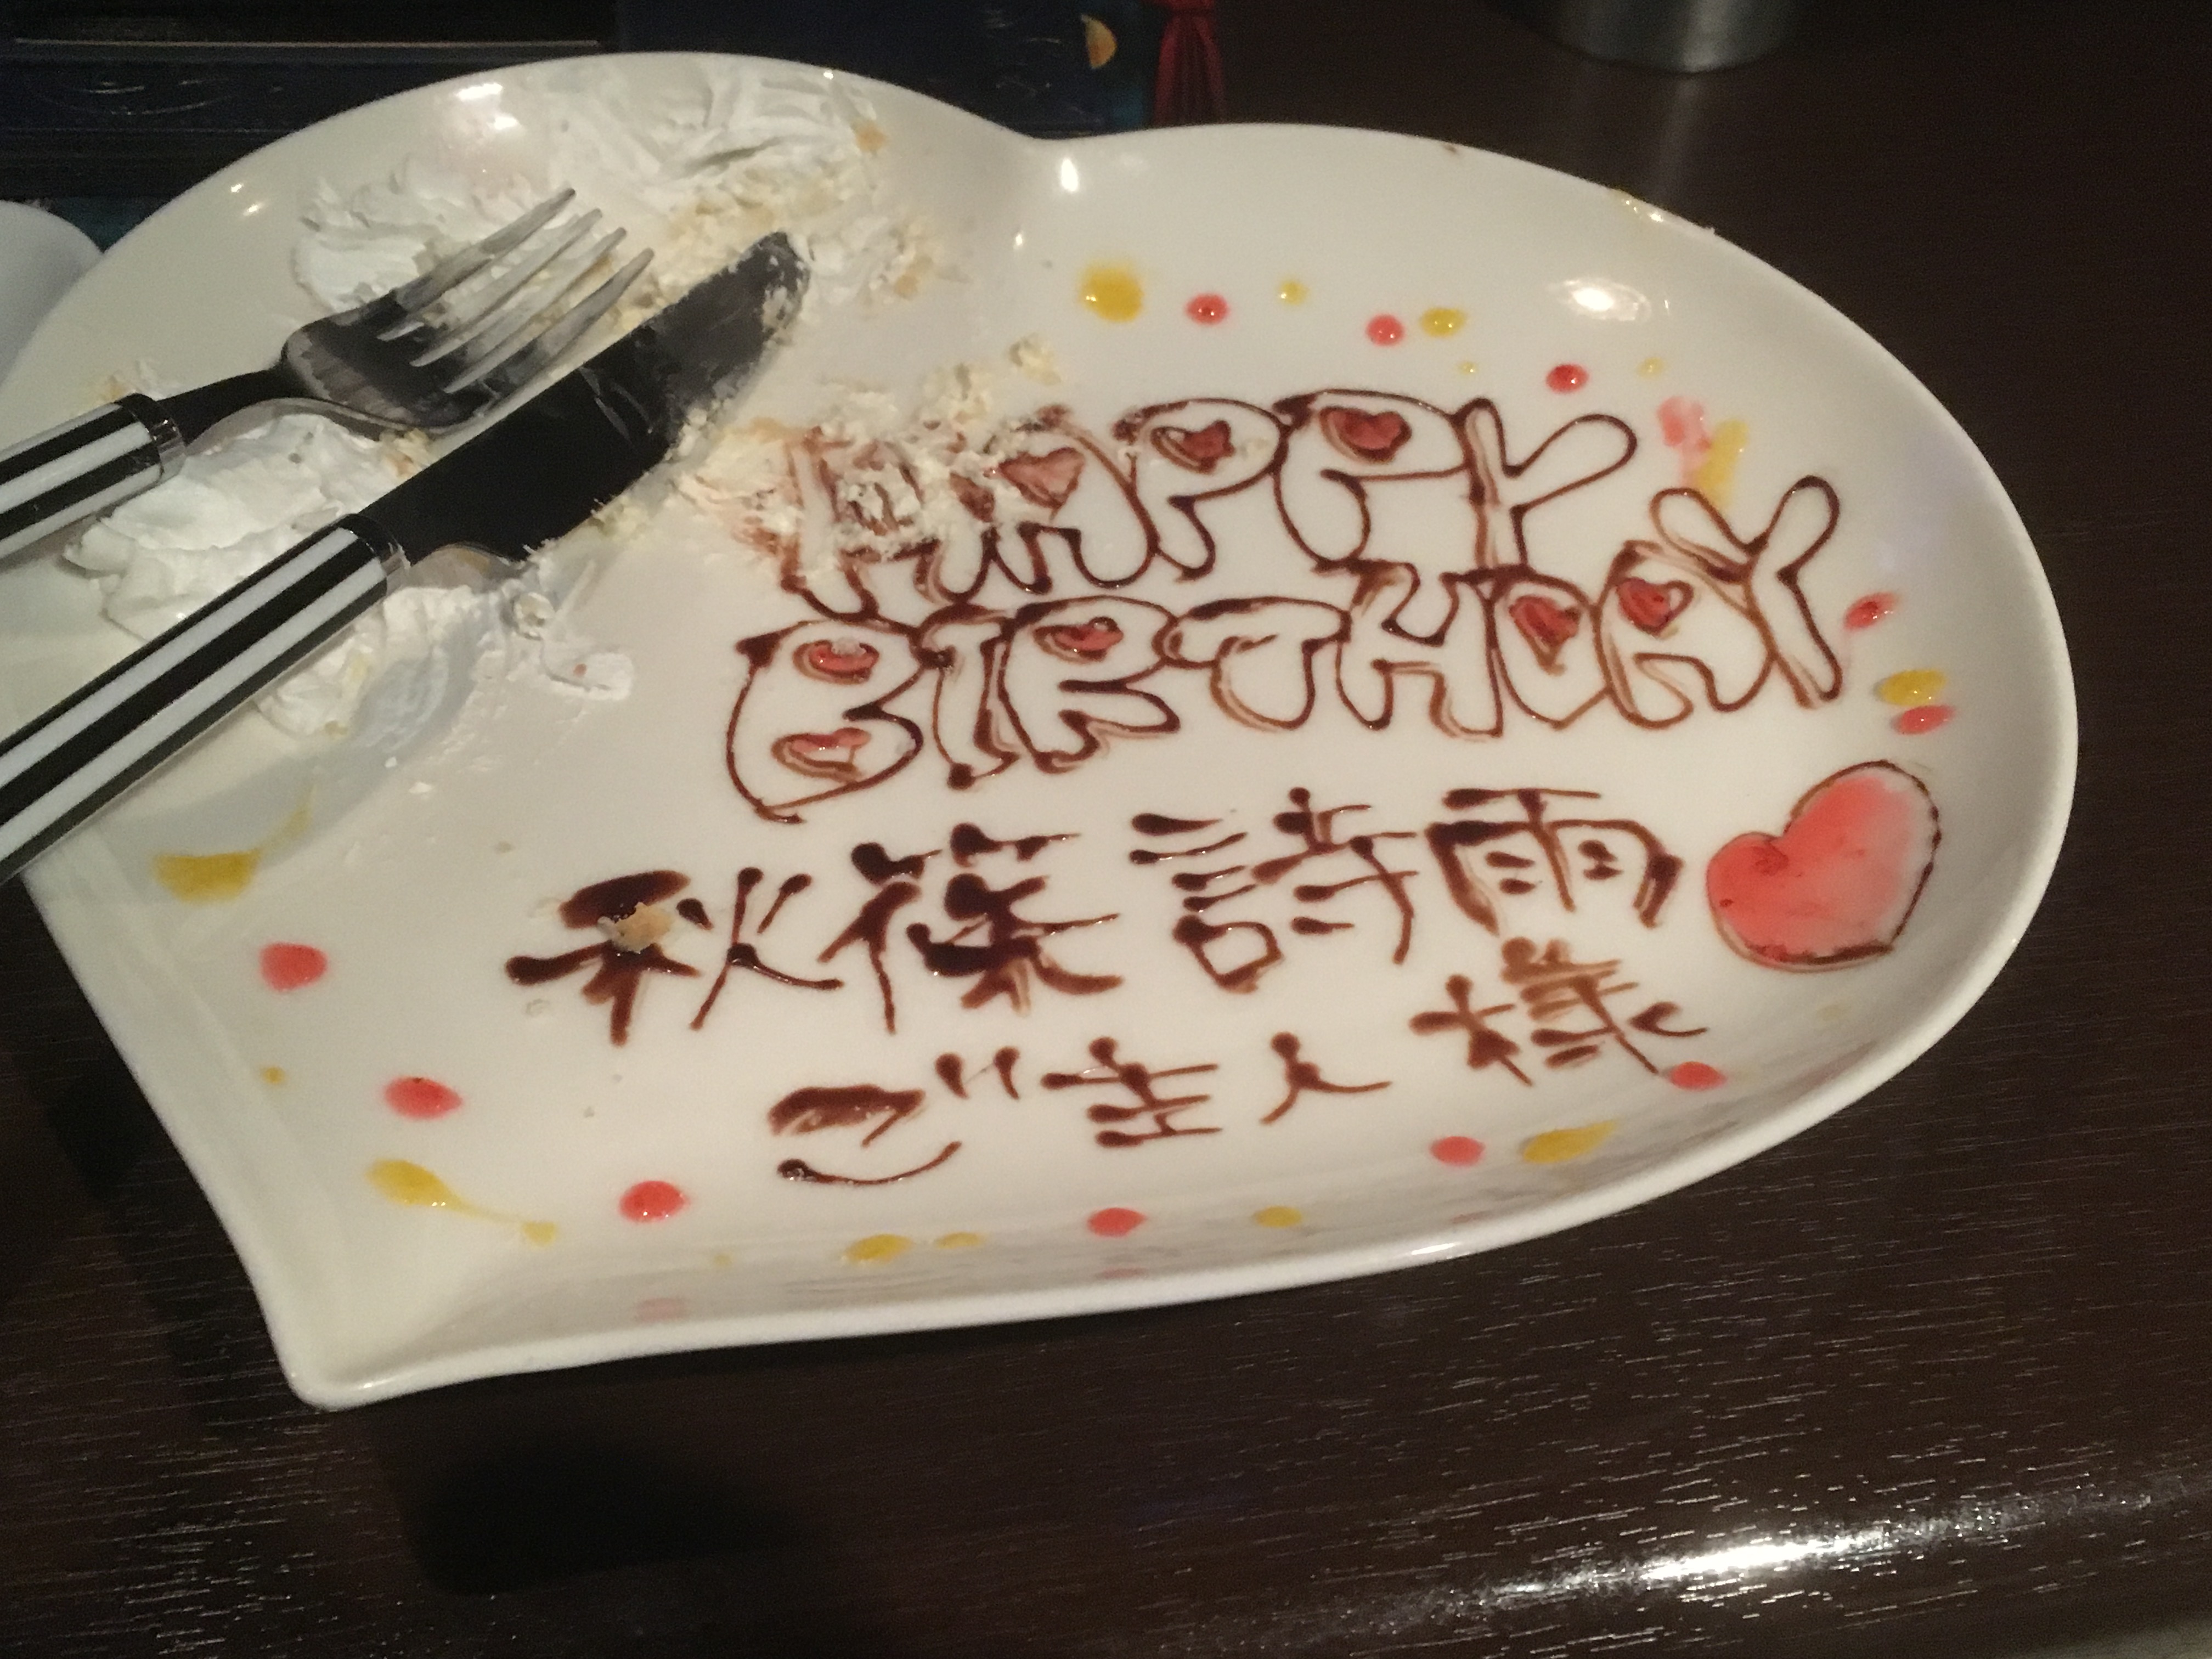 HAPPY
BIRTHDAY
秋篠 詩雨
ご主人様